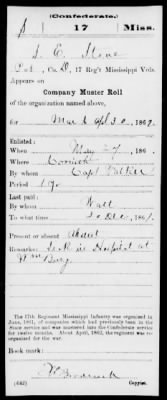 (Confederate.)
S 17 Miss.
S. E. Stone
Co. D, 17 Reg't Mississippi Vols.
Appears on
Company Muster Roll
of the organization named above,
for Mar & Apl 30, 1862.
Enlisted:
When May 27, 186
Where Corinth
By whom Capt
Period 1 yr
Last paid:
By whom Wall
To what time 31 Dec, 1861.
Present or absent Absent
Remarks: Sick in Hospital at
Wmsburg
The 17th Regiment Mississippi Infantry was organized in
June, 1861, of companies which had previously been in the
State service and was mustered into the Confederate service
for twelve months. About April, 1862, the regiment was re-
organized for the war.
Book mark:
(642) Copyist.